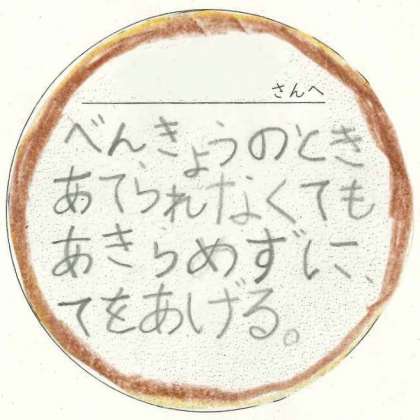 さんへ
べんきょうのとき
あてられなくても
あきらめずに、
てをあげる。